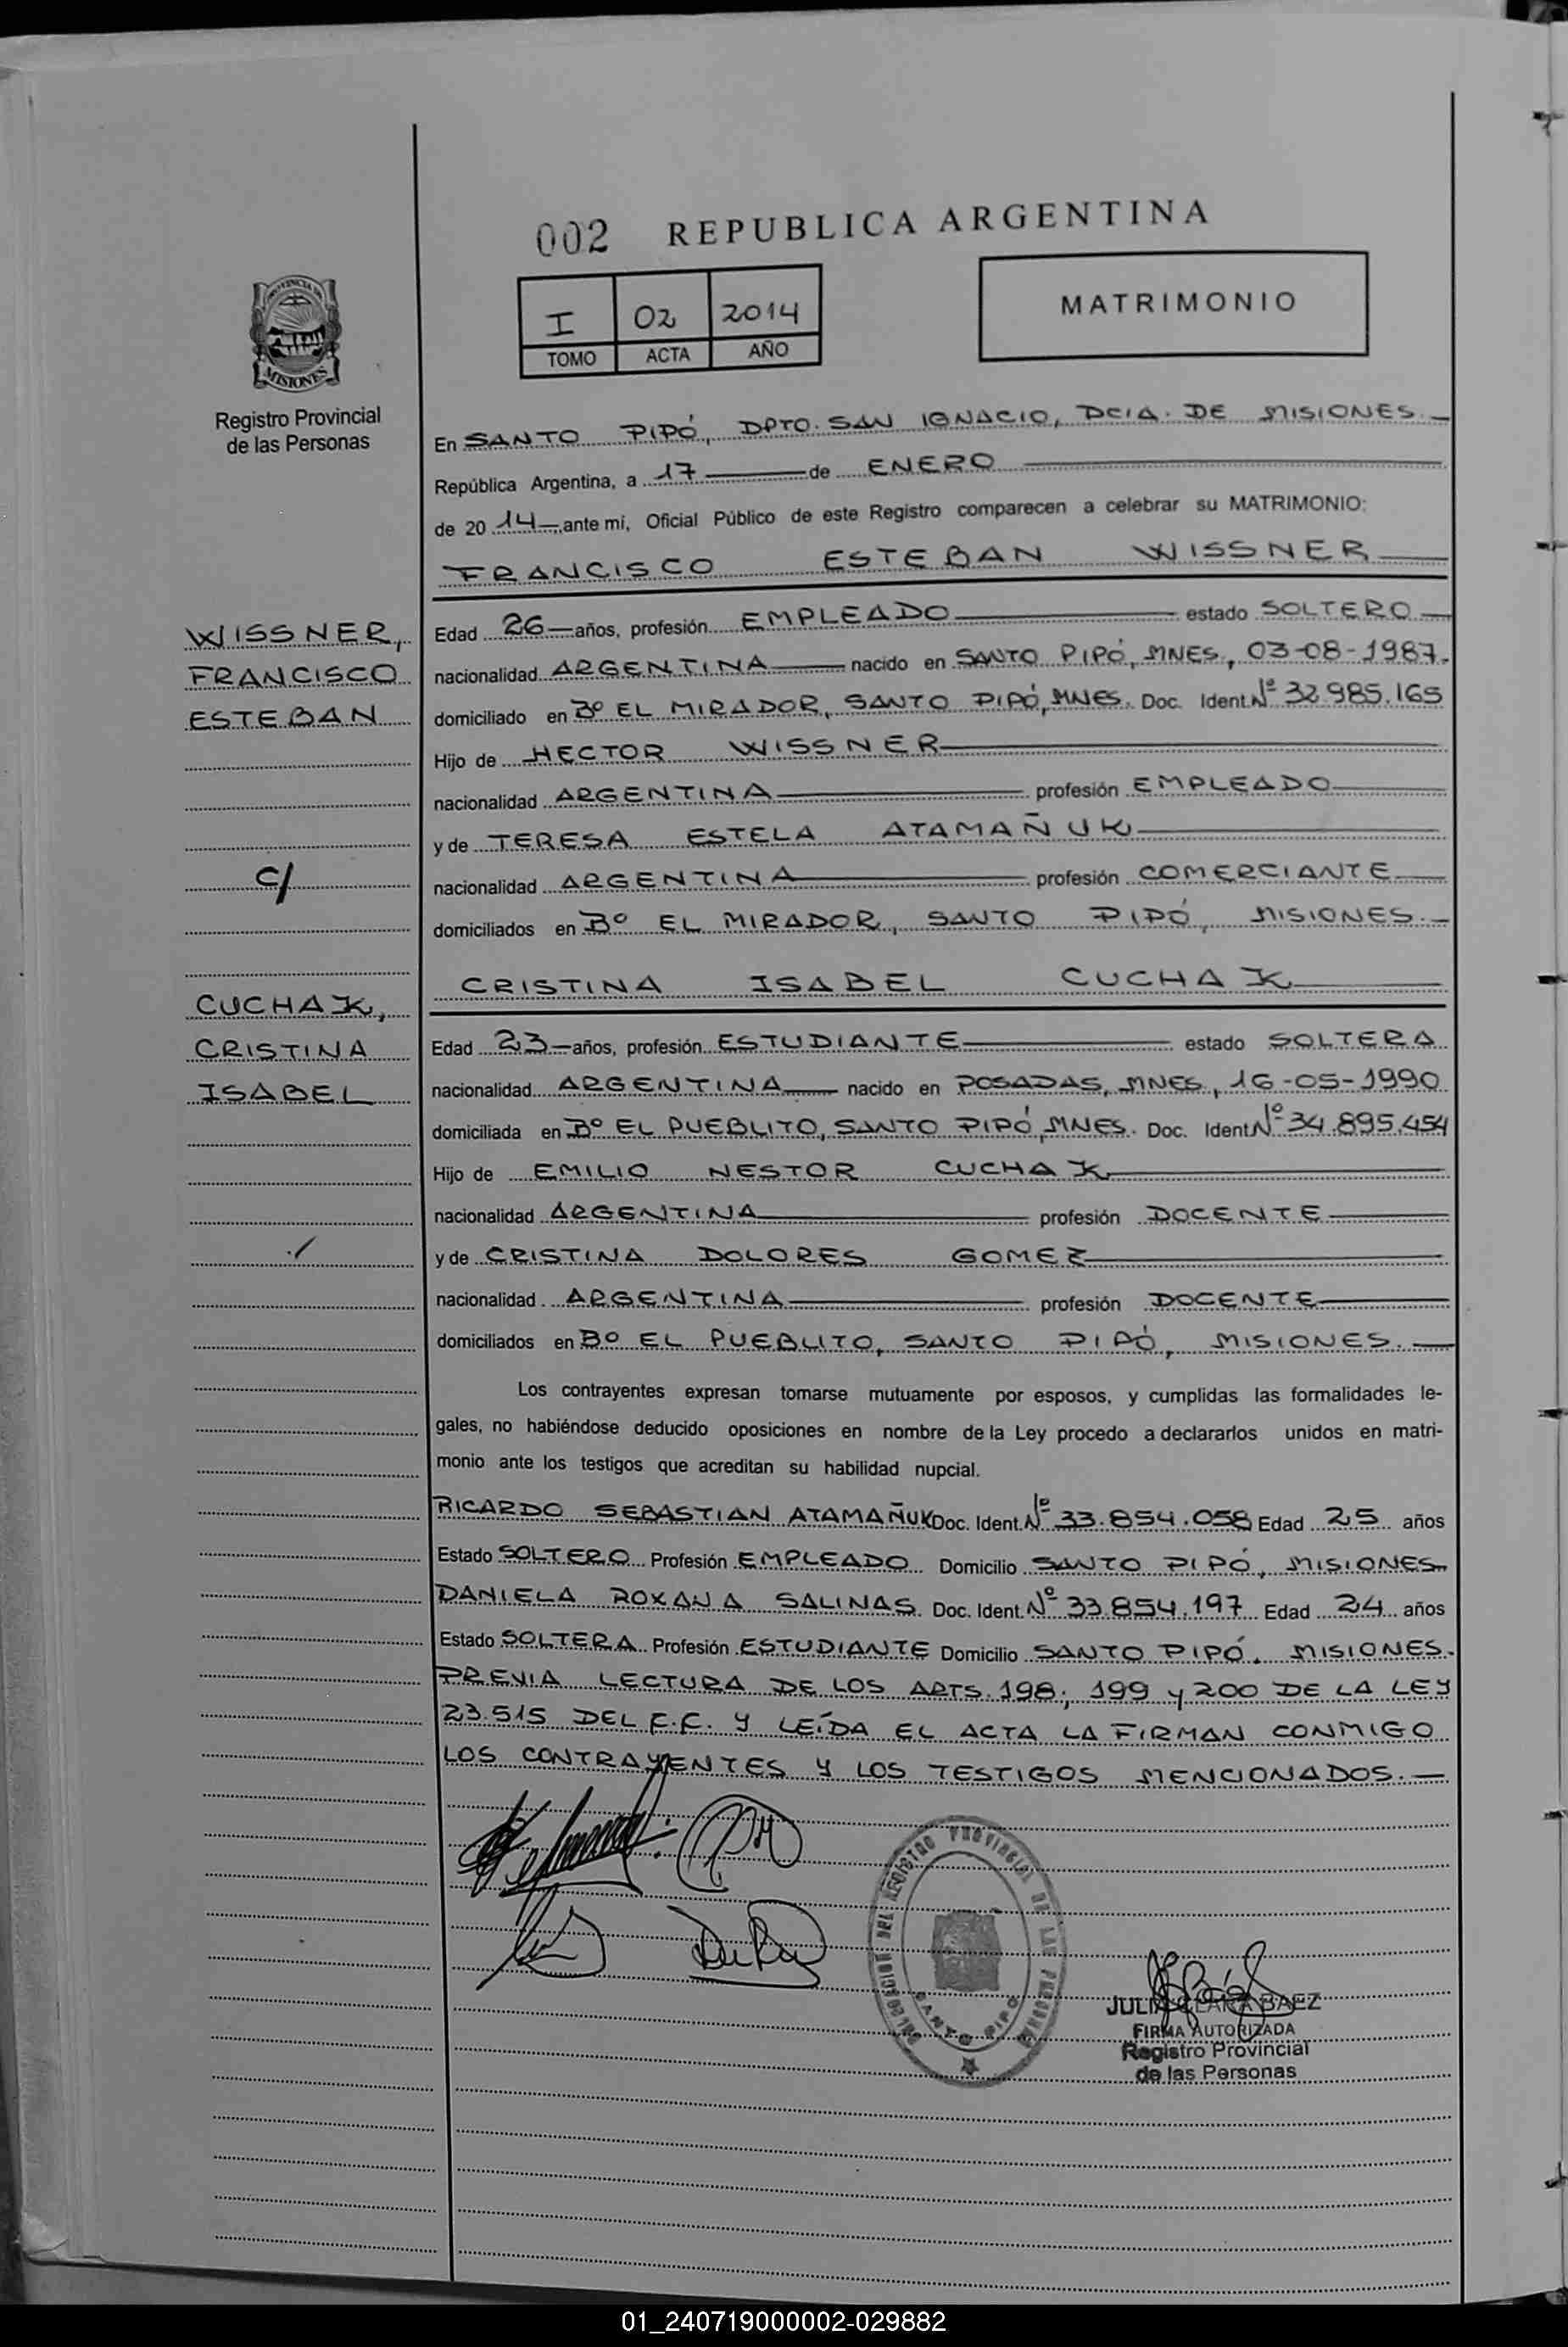 002 REPUBLICA ARGENTINA
I 02 2014
TOMO ACTA AÑO
MATRIMONIO
PROVINCIA DE
MISIONES
Registro Provincial
de las Personas
En SANTO PIPÓ, DPTO. SAN IGNACIO, PCIA. DE MISIONES.
República Argentina, a 17 de ENERO
de 2014 ante mí, Oficial Público de este Registro comparecen a celebrar su MATRIMONIO:
FRANCISCO ESTEBAN WISSNER
WISSNER,
FRANCISCO
ESTEBAN
C/
CUCHAK,
CRISTINA
ISABEL
Edad 26 años, profesión EMPLEADO estado SOLTERO
nacionalidad ARGENTINA nacido en SANTO PIPÓ, MNES, 03-08-1987.
domiciliado en Bº EL MIRADOR, SANTO PIPÓ, MNES. Doc. Ident. Nº 32.985.165
Hijo de HECTOR WISSNER
nacionalidad ARGENTINA profesión EMPLEADO
y de TERESA ESTELA ATAMAÑUK
nacionalidad ARGENTINA profesión COMERCIANTE
domiciliados en Bº EL MIRADOR, SANTO PIPÓ, MISIONES.
CRISTINA ISABEL CUCHAK
Edad 23 años, profesión ESTUDIANTE estado SOLTERA
nacionalidad ARGENTINA nacido en POSADAS, MNES, 16-05-1990
domiciliada en Bº EL PUEBLITO, SANTO PIPÓ, MNES. Doc. Ident. Nº 34.895.454
Hijo de EMILIO NESTOR CUCHAK
nacionalidad ARGENTINA profesión DOCENTE
y de CRISTINA DOLORES GOMEZ
nacionalidad ARGENTINA profesión DOCENTE
domiciliados en Bº EL PUEBLITO, SANTO PIPÓ, MISIONES.
Los contrayentes expresan tomarse mutuamente por esposos, y cumplidas las formalidades le-
gales, no habiéndose deducido oposiciones en nombre de la Ley procedo a declararlos unidos en matri-
monio ante los testigos que acreditan su habilidad nupcial.
RICARDO SEBASTIAN ATAMAÑUK Doc. Ident. Nº 33.854.058 Edad 25 años
Estado SOLTERO Profesión EMPLEADO Domicilio SANTO PIPÓ, MISIONES
DANIELA ROXANA SALINAS Doc. Ident. Nº 33.854.197 Edad 24 años
Estado SOLTERA Profesión ESTUDIANTE Domicilio SANTO PIPÓ. MISIONES.
PREVIA LECTURA DE LOS ARTS. 198; 199 y 200 DE LA LEY
23.515 DEL E.F. Y LEÍDA EL ACTA LA FIRMAN CONMIGO
LOS CONTRAYENTES Y LOS TESTIGOS MENCIONADOS.
DELEGACION DEL REGISTRO PROVINCIAL DE LAS PERSONAS
SANTO PIPO
JULIA CLARA BAEZ
FIRMA AUTORIZADA
Registro Provincial
de las Personas
01_240719000002-029882